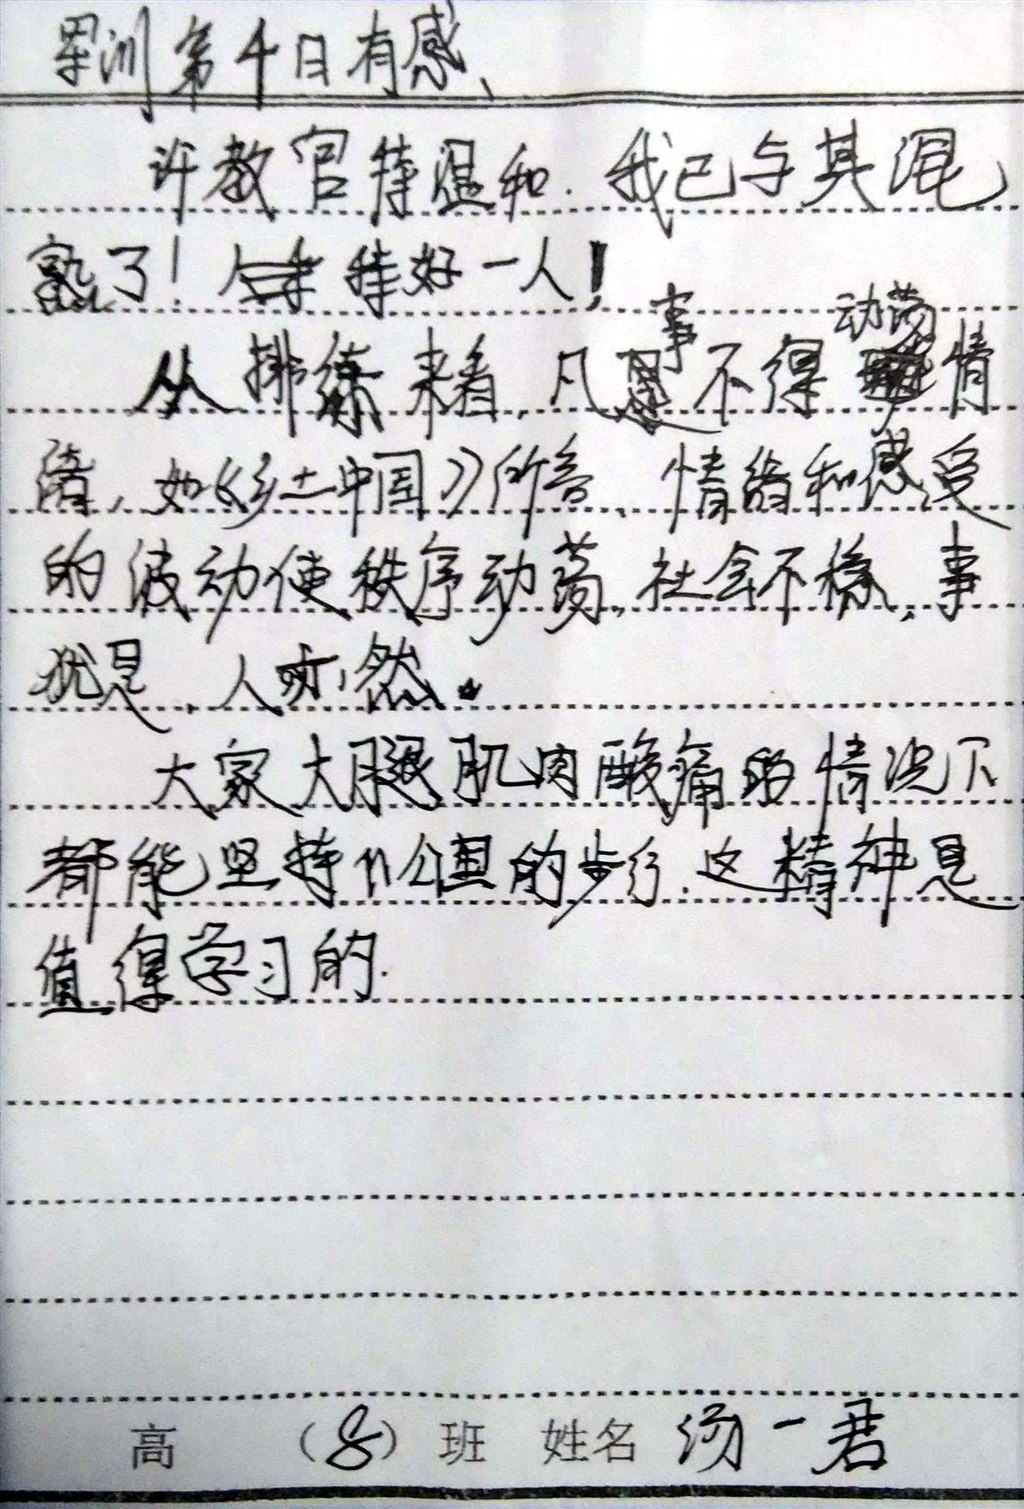 军训第4日有感
许教官特温和.我已与其混
熟了!特好一人!
从排练来看,凡事不得动荡情
绪,如《乡土中国》所言、情绪和感受
的波动使秩序动荡,社会不稳,事
犹是、人亦然。
大家大腿肌肉酸痛的情况下
都能坚持11公里的步行.这精神是
值得学习的.
高 (8)班 姓名 汤一君